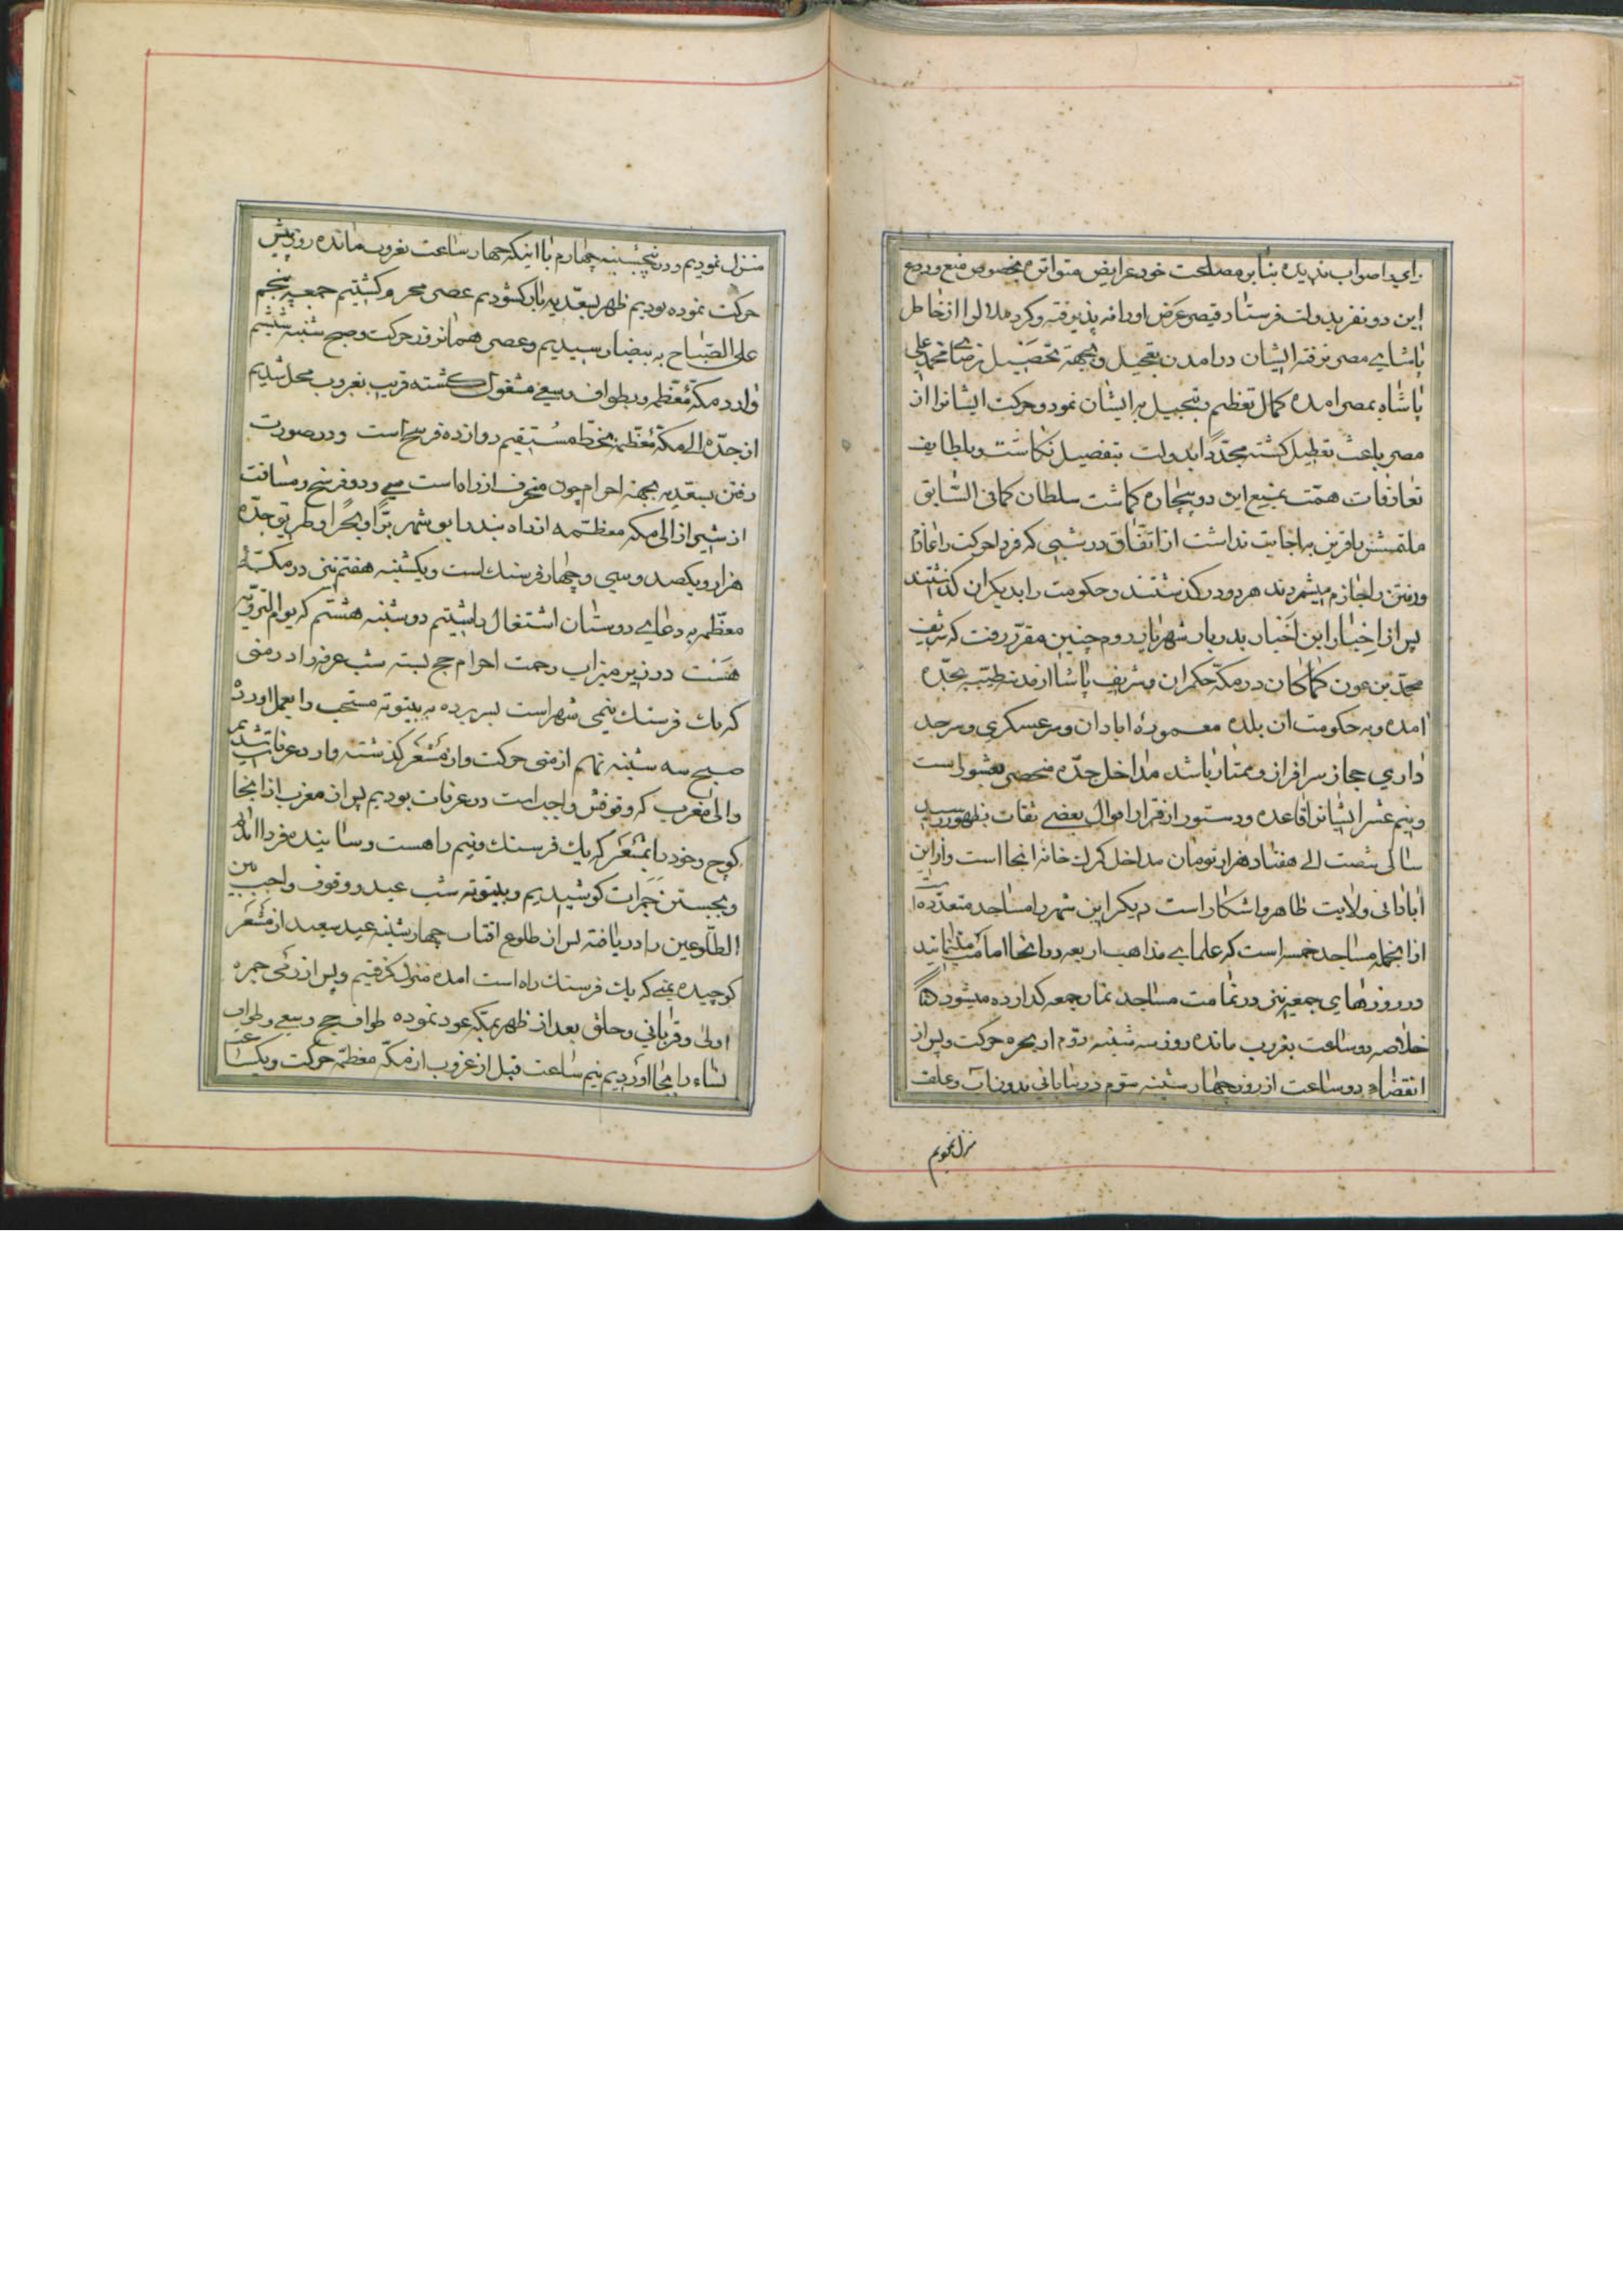 رای را صواب ندیده بنابر مصلحت خود عرایض متواتره بخصوص منع و ردع
این دو نفر بدولت فرستاد قیصر عرض او را نه پذیرفته و کرد ملالوا از خاطر
پاشای مصر نرفته ایشان در امدن بتعجیل و بجهة تحصیل رضای محمد علی
پاشا بمصر امده کمال تعظیم و تبجیل بر ایشان نمود و حرکت ایشانرا از
مصر باعث تعطیل کشته مجدّداً بدولت بتفصیل نکاشت و بلطایف
تعارفات همّت بمنع این دو بیچاره کماشت سلطان کمافی السّابق
ملتمسش را قرین به اجابت نداشت از اتّفاق در شبی که فردا حرکت را عازم
و رفتن را جازم میشمردند هر دو در کذشتند و حکومت را بدیکران کذاشتند
پس از اخبار این اخبار بدربار شهریار روم چنین مقرّر رفت که شریف
محمّد بن عون کماکان در مکّه حکمران و شریف پاشا از مدینه طیّبه بجدّه
امده و به حکومت ان بلده معموره ابادان و سر عسکری و سرحد
داری حجاز سرافراز و ممتاز باشد مداخل جدّه منحصر بعشور است
و نیم عشر ایشانرا قاعده و دستور از قرار اموال بعضی ثقات بظهور رسید
سالی شصت الی هفتاد هزار تومان مداخل کمرک خانه انجا است و از این
ابادانی ولایت ظاهر و اشکار است دیکر این شهر را مساجد متعدّده است
از انجمله مساجد خمسه است که علمای مذاهب اربعه در انجا امامت مینمایند
در روزهای جمعه نیز در تمامت مساجد نماز جمعه کذارده میشود
خلاصه دو ساعت بغروب مانده روز سه شنبه دوّم از بحره حرکت و پس از
انقضاء دو ساعت از روز چهار شنبه سوّم در بیابانی بدون اب و علف
منزل نمودیم
منزل نمودیم و در پنجشنبه چهارم با اینکه چهار ساعت بغروب مانده روز پیش
حرکت نموده بودیم ظهر بسعدیه بار کشودیم عصر محرم کشتیم جمعه پنجم
علی الصّباح به بیضا رسیدیم و عصر همانروز حرکت و صبح شنبه ششم
وارد مکّهٔ معظّمه و بطواف و سعی مشغول کشته قریب بغروب محل شدیم
از جدّه الی مکّهٔ معظّمه بخطّ مستقیم دوازده فرسخ است و در صورت
رفتن بسعدیه بجهة احرام چون منحرف از راه است سی و دو فرسخ و مسافت
از شیراز الی مکه معظّمه از راه بندر ابوشهر برّاً و بحراً و طریق جدّه
هزار و یکصد و سی و چهار فرسنک است و یکشنبه هفتم نیز در مکّهٔ
معظّمه به دعای دوستان اشتغال داشتیم دوشنبه هشتم که یوم الترویه
هست در زیر میزاب رحمت احرام حج بسته شب عرفه را در منی
که یک فرسنک نیمی شهر است بسر برده به بیتوته مستحب را بعمل اورده
صبح سه شنبه نهم از منی حرکت و از مشعر کذشته وارد عرفات شدیم
و الی مغرب که وقوفش واجب است در عرفات بودیم پس از مغرب از انجا
کوچ و خود را بمشعر که یک فرسنک و نیم راهست رسانیده
و بجستن جمرات کوشیدیم و بیتوته شب عید و وقوف واجب بین
الطّلوعین را دریافته پس از طلوع افتاب چهارشنبه عید سعید از مشعر
کوچیده بمنی که یک فرسنک راه است امده منزل کرفتیم و پس از رمی جمره
اولی و قربانی و حلق بعد از ظهر بمکّه عود نموده طواف حج و سعی و طواف
نساء را بجا اوردیم نیم ساعت قبل از غروب از مکّه معظّمه حرکت و یکساعت